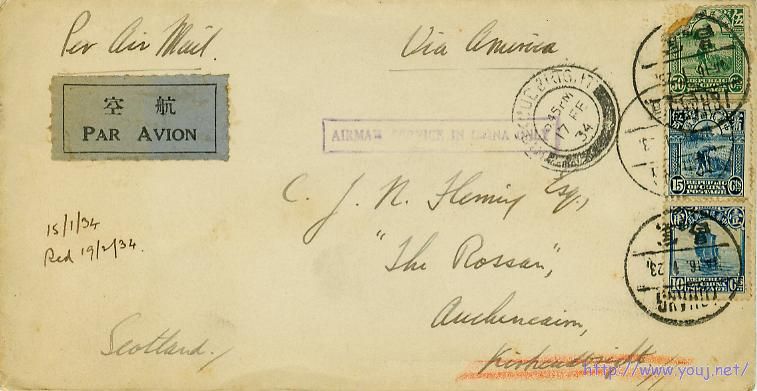 Per Air Mail.
Via America
空 航
PAR AVION
AIRMAIL SERVICE IN CHINA ONLY
KIRKCUDBRIGHT
245PM
17 FE
34
C. J. N. Fleming Esq.,
"The Rossan",
Auchencairn,
Kirkcudbright,
Scotland.
15/1/34
Red 19/2/34.
50 Cts
15 REPUBLIC OF CHINA POSTAGE Cts
10 REPUBLIC OF CHINA POSTAGE Cts
ICHANG
http://www.youj.net/